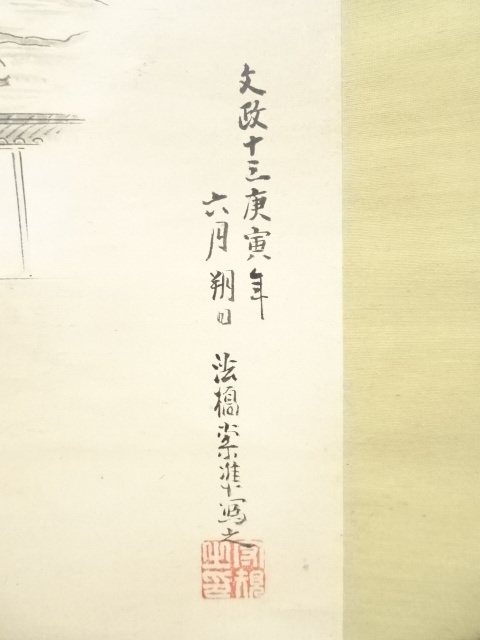 文政十三庚寅年
六月朔日 法橋崇準写之